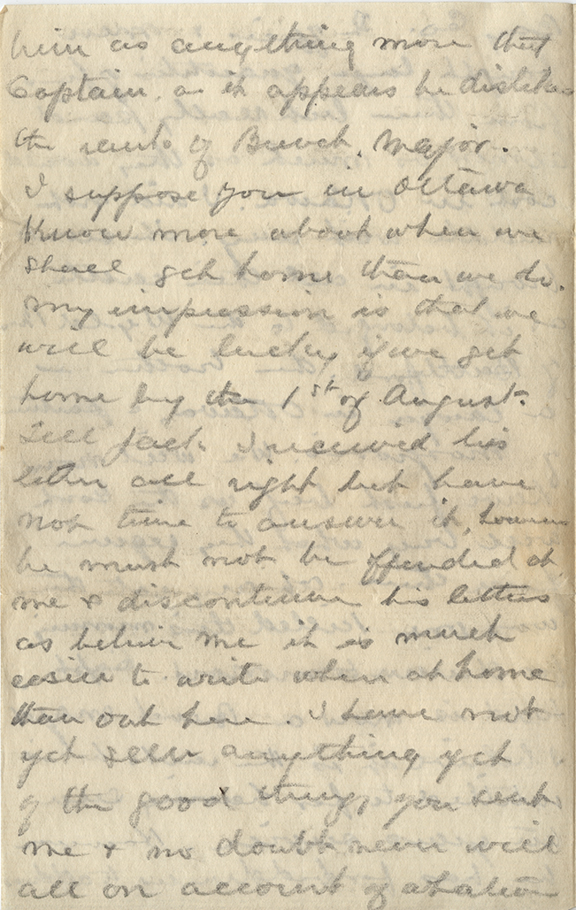 him as anything more that
Captain, as it appears he dislikes
the rank of Brevet. Major.
I suppose you in Ottawa
know more about when we
shall get home than we do.
my impression is that we
will be lucky if we get
home by the 1st of August.
Tell Jack I received his
letter all right but have
not time to answer it, however
he must not be offended at
me & discontinue his letters
as believe me it is much
easier to write when at home
than out here. I have not
yet seen anything yet
of the good things you sent
me & no doubt never will
all on account of